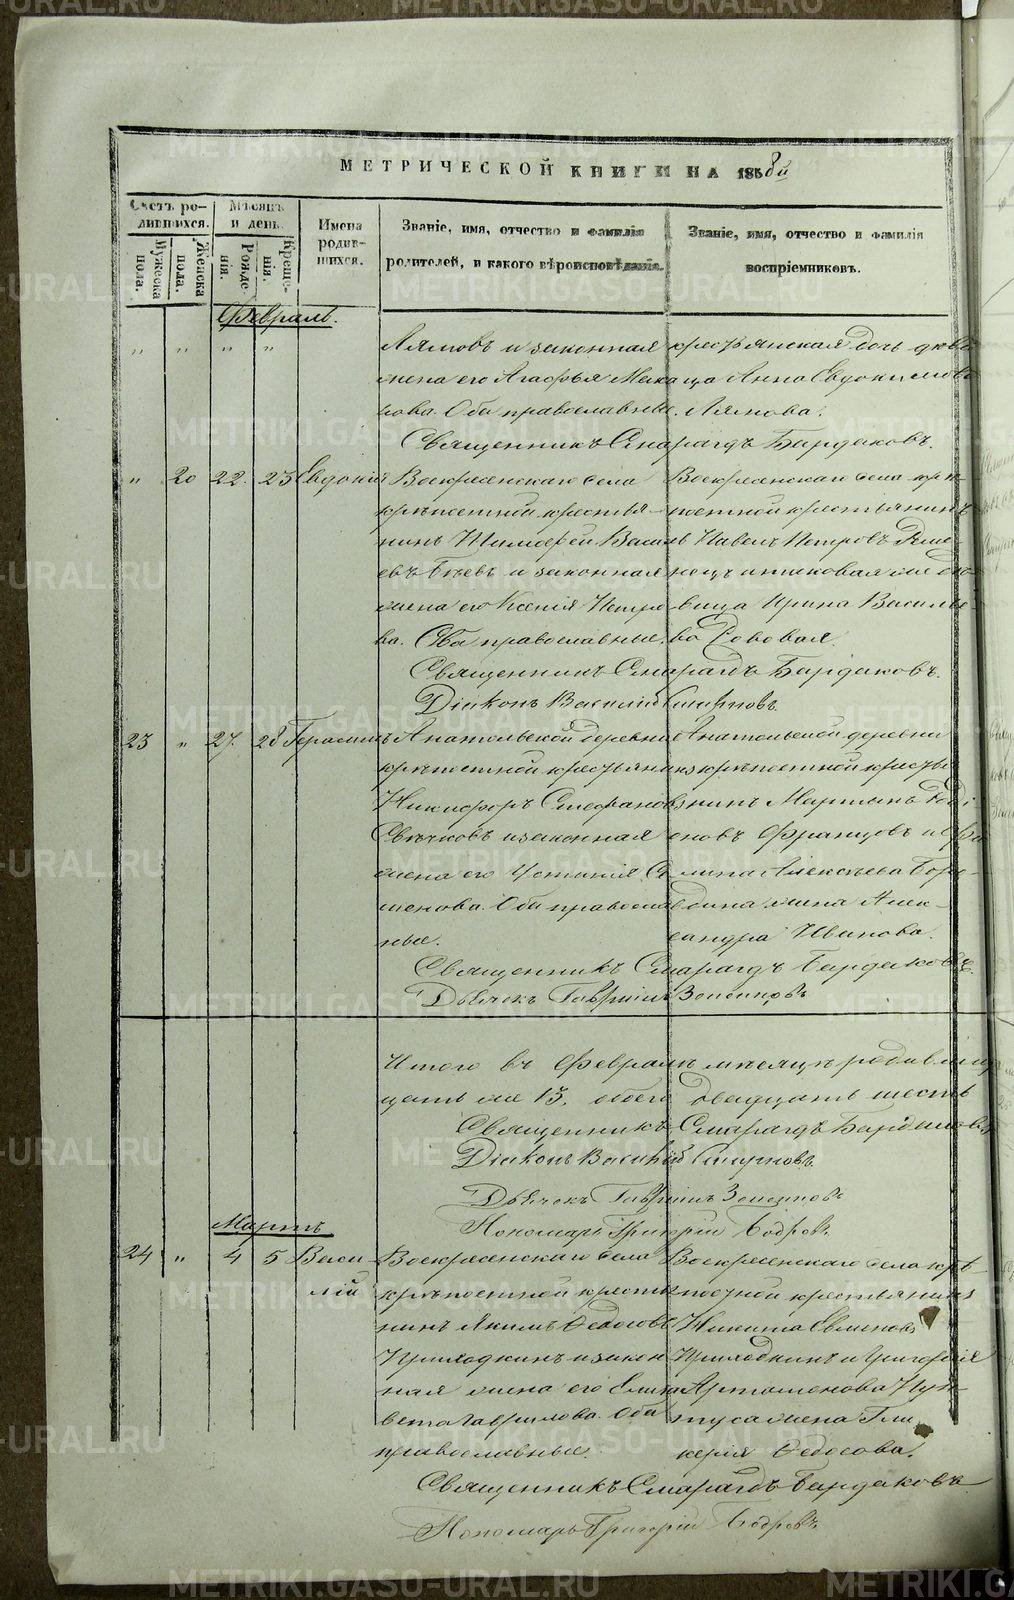 МЕТРИЧЕСКОЙ КНИГИ НА 1858й
Счетъ ро-
дившихся.
Мужеска
пола.
Женска
пола.
Мѣсяцъ
и день.
Рожде
нія.
Креще-
нія.
Имена
родив-
шихся.
Званіе, имя, отчество и фамилія
родителей, и какого вѣроисповѣданія.
Званіе, имя, отчество и фамилія
воспріемниковъ.
Февраль.
" " " "
Лямовъ и законная
жена его Агафья
Оба православные.
крестьянская дочь
Анна Евдокимова
Лямова.
Священникъ Смарагдъ Бардаковъ.
" 20 22. 23 Евдокія
Воскресенскаго села
крѣпостной крестья-
нинъ Тимофей Василь
евъ и законная
жена его Ксенія Петро
ва. Оба православные.
Воскресенскаго села крѣ
постной крестьянинъ
Павелъ Петровъ
вица Ирина Василье
ва
Священникъ Смарагдъ Бардаковъ.
Діаконъ Василій Смирновъ.
23 " 27. 28 Герасимъ
Анатольской деревни
крѣпостной крестьянинъ
Никифоръ Стефановъ
Свѣчковъ и законная
жена его Устинія
Оба православ
ные.
Анатольской деревни
крѣпостной кресть
нинъ Мартынъ
оновъ Францовъ и
Алексѣева
жена Алек-
сандра Иванова.
Священникъ Смарагдъ Бардаковъ.
Дьячекъ Гавріилъ Земляновъ
Итого въ Февралѣ мѣсяцѣ родившихъ
13, обоего двадцать шесть
Священникъ Смарагдъ Бардаковъ
Діаконъ Василій Смирновъ.
Дьячекъ Гавріилъ
Пономарь Григорій Бодровъ
Мартъ
24 " 4 5 Васи-
лій
Воскресенскаго села
крѣпостной кресть
нинъ Якимъ Ѳедосовъ
Приходкинъ и закон
ная жена его Елиза
вета Гаврилова. Оба
православные.
Воскресенскаго села крѣ
постной крестьянинъ
Никита
Приходкинъ и Григорія
Артамонова
жена Гли
керія Ѳедосова.
Священникъ Смарагдъ Бардаковъ
Пономарь Григорій Бодровъ.
METRIKI.GASO-URAL.RU